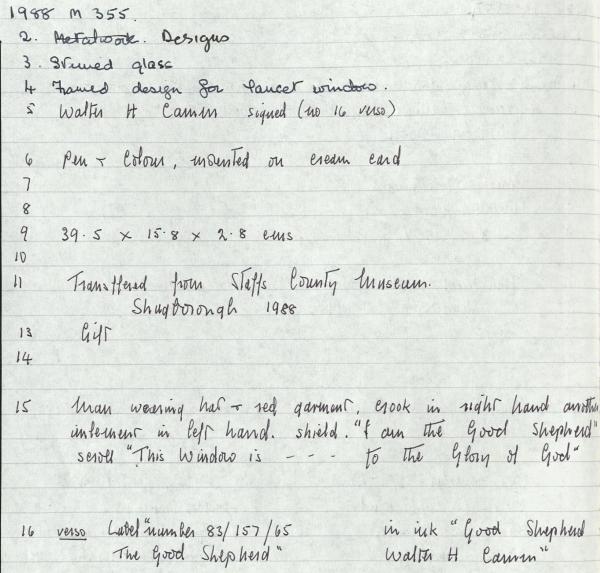 1988 M 355.
2. Metalwork. Designs
3. Stained glass
4 Framed design for lancet window.
5 Walter H Camm signed (no 16 verso)
6 Pen + Colour, mounted on cream card
7
8
9 39.5 x 15.8 x 2.8 cms
10
11 Transffered from Staffs County Museum.
Shugborough 1988
13 Gift
14
15 Man wearing hat + red garment, crook in right hand another
in left hand. shield. "I am the Good Shepherd"
scroll "This Window is - - - to the Glory of God"
16 verso Label "number 83/157/65 in ink "Good Shepherd
The Good Shepherd" Walter H Camm"